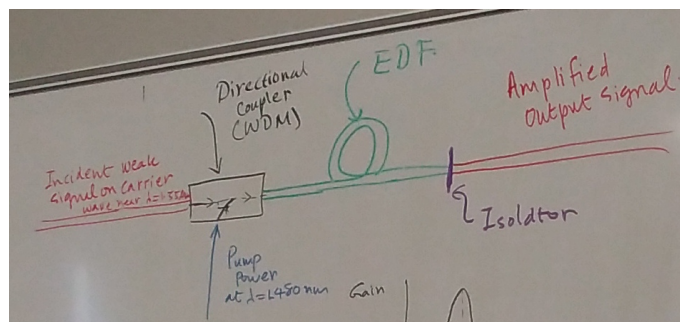 Directional
Coupler
(WDM)
EDF
Amplified
Output Signal
Incident weak
signal on carrier
wave near λ=1.55
Isolator
Pump
Power
at λ=1480 nm
Gain